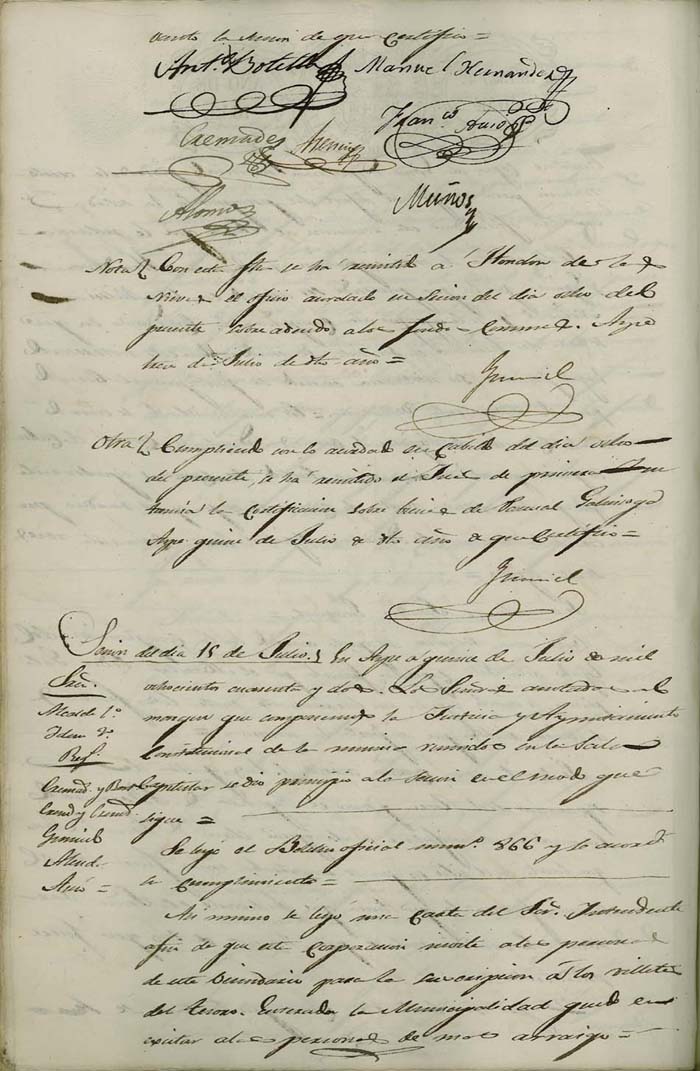 vanto la sesion de que certifico =
Ant.º Botella Manuel Hernandez
Fran.co
Cremades Asencio
Alonso Muños
Nota Con esta fha se ha remitido a Hondon de las
Nieves el oficio acordado en sesion del dia ocho del
presente sobre adeudo a los fondos Comunes. Aspe
trece de Julio de dho año =
Otra Cumpliendo con lo acordado en cabildo del dia ocho
del presente, se ha remitido al Juez de primera Ins
tancia la certificacion sobre de Pascual
Aspe quince de Julio de dho año de que certifico =
Sesion del dia 15 de Julio. En Aspe a quince de Julio de mil
ochocientos cuarenta y dos. Los Señores anotados al
margen que componen la Justicia y Ayuntamiento
Constitucional de la misma reunidos en la Sala
Capitular se dio principio a la sesion en el modo que
sigue =
Sres.
Alcalde 1.º
Idem 2.º
Reg.
Cremad. y
Cremd. y Cremd.
Se leyo el Boletin oficial num.º 866 y se acordó
su cumplimiento =
Asi mismo se leyó una Carta del Sor. Intendente
afin de que esta Corporacion invite a las personas
de este Vecindario para la suscripcion á los villetes
del tesoro. Enterada la Municipalidad quedó en
excitar a las personas de mas arraigo =